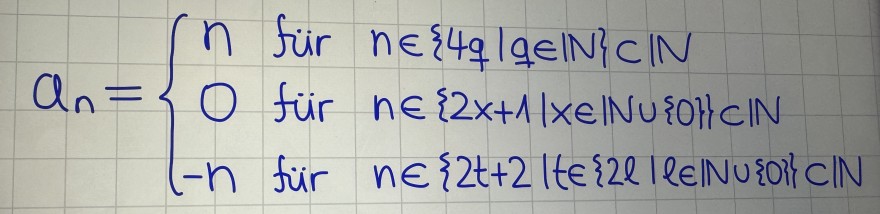 n für n∈{4q|q∈ℕ}⊂ℕ
aₙ= 0 für n∈{2x+1|x∈ℕ∪{0}}⊂ℕ
-n für n∈{2t+2|t∈{2l|l∈ℕ∪{0}}⊂ℕ